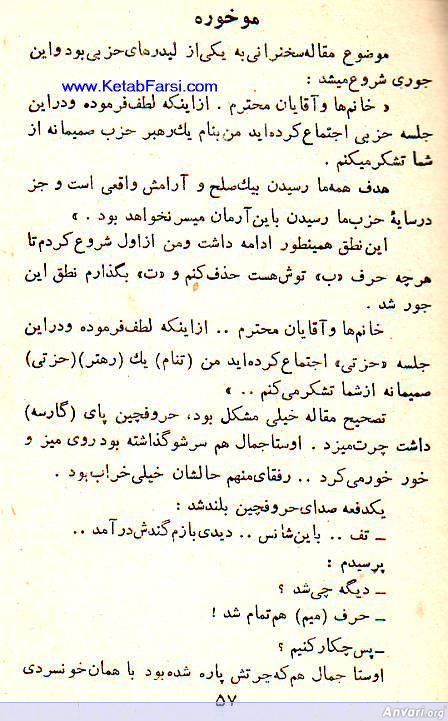 موخوره
موضوع مقاله سخنرانی به یکی از لیدرهای حزبی بود و این
جوری شروع میشد :
www.KetabFarsi.com
« خانم‌ها و آقایان محترم . از اینکه لطف فرموده و در این
جلسه حزبی اجتماع کرده‌اید من بنام یك رهبر حزب صمیمانه از
شما تشکر میکنم .
هدف همه‌ما رسیدن بیك صلح و آرامش واقعی است و جز
در سایهٔ حزب‌ما رسیدن باین آرمان میسر نخواهد بود . »
این نطق همینطور ادامه داشت ومن از اول شروع کردم تا
هرچه حرف «ب» توش هست حذف کنم و «ت» بگذارم نطق این
جور شد .
خانم‌ها و آقایان محترم .. از اینکه لطف فرموده و در این
جلسه «حزتی» اجتماع کرده‌اید من (تنام) یك (رهتر)(حزتی)
صمیمانه از شما تشکر می‌کنم .. »
تصحیح مقاله خیلی مشکل بود، حروفچین پای (گارسه)
داشت چرت میزد . اوستا جمال هم سرشو گذاشته بود روی میز و
خور خور می‌کرد .. رفقای منهم حالشان خیلی خراب بود .
یکدفعه صدای حروفچین بلند شد :
ـ تف .. باین شانس .. دیدی بازم گندش در آمد ..
پرسیدم :
ـ دیگه چی شد ؟
ـ حرف (میم) هم تمام شد !
ـ پس چکار کنیم ؟
اوستا جمال هم که چرتش پاره شده بود با همان خونسردی
۵۷
Anvari.org